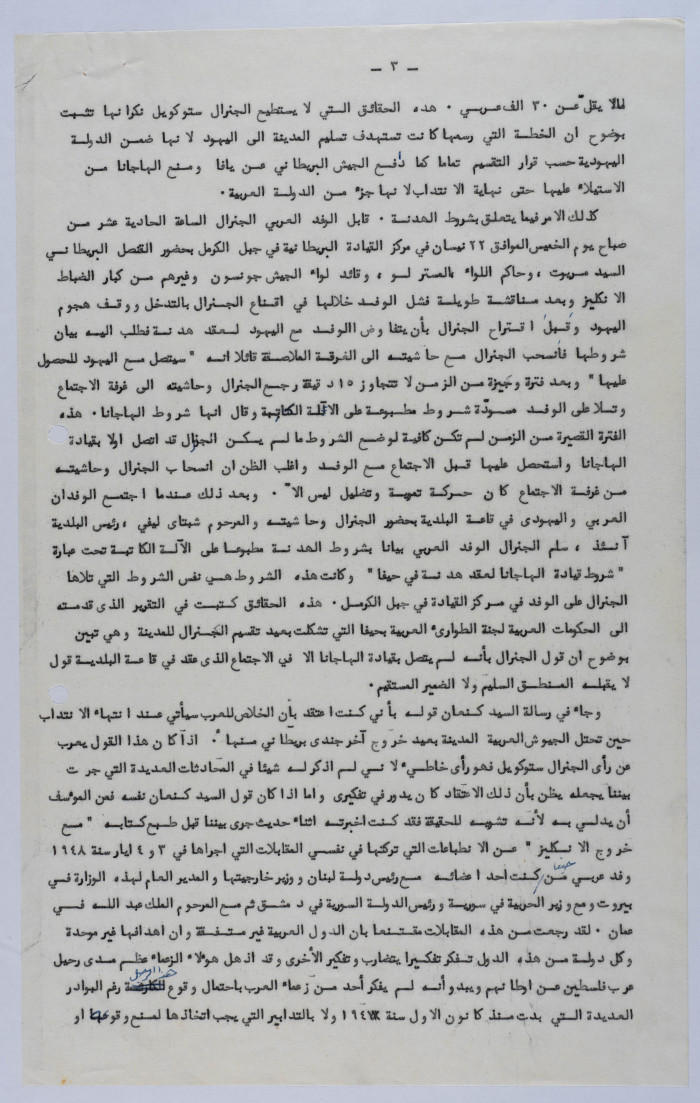 - ٣ -
مالا يقل عن ٣٠ الف عربي . هذه الحقائق التي لا يستطيع الجنرال ستوكويل نكرانها تثبت
بوضوح ان الخطة التي رسمها كانت تستهدف تسليم المدينة الى اليهود لانها ضمن الدولة
اليهودية حسب قرار التقسيم تماما كما دافع الجيش البريطاني عن يافا ومنع الهاجانا من
الاستيلاء عليها حتى نهاية الانتداب لانها جزء من الدولة العربية .
كذلك الامر فيما يتعلق بشروط الهدنة . قابل الوفد العربي الجنرال الساعة الحادية عشر من
صباح يوم الخميس الموافق ٢٢ نيسان في مركز القيادة البريطانية في جبل الكرمل بحضور القنصل البريطاني
السيد مريوت ، وحاكم اللواء بالمستر لو ، وقائد لواء الجيش جونسون وغيرهم من كبار الضباط
الانكليز وبعد مناقشة طويلة فشل الوفد خلالها في اقناع الجنرال بالتدخل ووقف هجوم
اليهود وقبل اقتراح الجنرال بأن يتفاوض الوفد مع اليهود لعقد هدنة فطلب اليه بيان
شروطها فأنسحب الجنرال مع حاشيته الى الغرفة الملاصقة قائلا انه " سيتصل مع اليهود للحصول
عليها " وبعد فترة وجيزة من الزمن لا تتجاوز ١٥ دقيقة رجع الجنرال وحاشيته الى غرفة الاجتماع
وتلا على الوفد مسودّة شروط مطبوعة على الآلة الكاتبة وقال انها شروط الهاجانا . هذه
الفترة القصيرة من الزمن لم تكن كافية لوضع الشروط ما لم يكن الجنرال قد اتصل اولا بقيادة
الهاجانا واستحصل عليها قبل الاجتماع مع الوفد واغلب الظن ان انسحاب الجنرال وحاشيته
من غرفة الاجتماع كان حركة تمويه وتضليل ليس الاّ . وبعد ذلك عندما اجتمع الوفدان
العربي واليهودى في قاعة البلدية بحضور الجنرال وحاشيته والمرحوم شبتاى ليفي ، رئيس البلدية
آنئذ ، سلم الجنرال الوفد العربي بيانا بشروط الهدنة مطبوعا على الآلة الكاتبة تحت عبارة
" شروط قيادة الهاجانا لعقد هدنة في حيفا " وكانت هذه الشروط هي نفس الشروط التي تلاها
الجنرال على الوفد في مركز القيادة في جبل الكرمل . هذه الحقائق كتبت في التقرير الذى قدمته
الى الحكومات العربية لجنة الطوارىء العربية بحيفا التي تشكلت بعيد تقسيم الجنرال للمدينة وهي تبين
بوضوح ان قول الجنرال بأنه لم يتصل بقيادة الهاجانا الا في الاجتماع الذى عقد في قاعة البلدية قول
لا يقبله المنطق السليم ولا الضمير المستقيم .
وجاء في رسالة السيد كنعان قوله بأني كنت اعتقد بأن الخلاص للعرب سيأتي عند انتهاء الانتداب
حين تحتل الجيوش العربية المدينة بعيد خروج آخر جندى بريطاني منها . اذا كان هذا القول يعرب
عن رأى الجنرال ستوكويل فهو رأى خاطيء لانني لم اذكر له شيئا في المحادثات العديدة التي جرت
بيننا يجعله يظن بأن ذلك الاعتقاد كان يدور في تفكيرى واما اذا كان قول السيد كنعان نفسه فمن المؤسف
أن يدلي به لأنه تشويه للحقيقة فقد كنت اخبرته اثناء حديث جرى بيننا قبل طبع كتابه " مع
خروج الانكليز " عن الانطباعات التي تركتها في نفسي المقابلات التي اجراها في ٣ و ٤ ايار سنة ١٩٤٨
حيفا
وفد عربي من كنت احد اعضائه مع رئيس دولة لبنان ووزير خارجيتها والمدير العام لهذه الوزارة في
بيروت ومع وزير الحربية في سورية ورئيس الدولة السورية في دمشق ثم مع المرحوم الملك عبد الله في
عمان . لقد رجعت من هذه المقابلات مقتنعا بان الدول العربية غير متفقة وان اهدافها غير موحدة
وكل دولة من هذه الدول تفكر تفكيرا يتضارب وتفكير الأخرى وقد اذهل هؤلاء الزعماء عظم مدى رحيل
عرب فلسطين عن اوطانهم ويبدو أنه لم يفكر أحد من زعماء العرب باحتمال وقوع رغم البوادر
العديدة التي بدت منذ كانون الاول سنة ١٩٤٧ ولا بالتدابير التي يجب اتخاذها لمنع وقوعه او